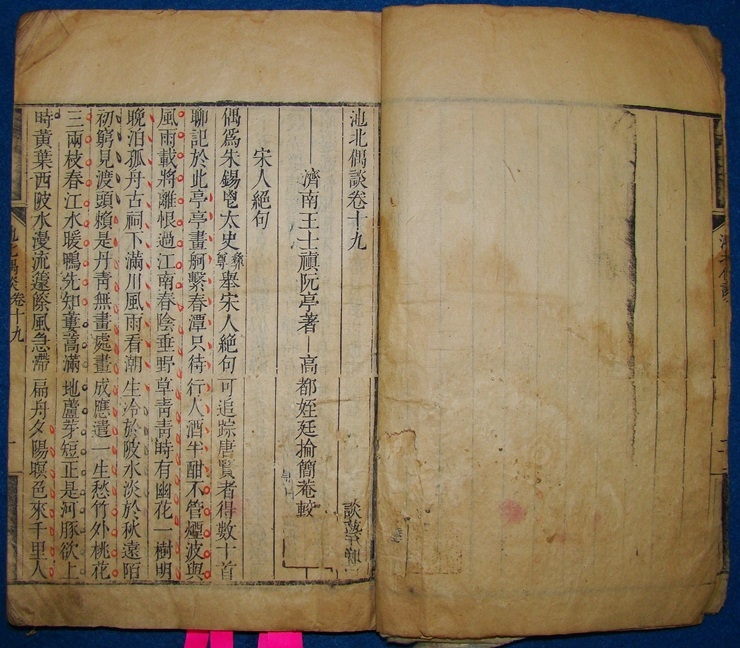 池北偶談卷十九
談藝
濟南王士禛阮亭著
高都姪廷掄簡菴較
宋人絕句
偶爲朱錫鬯太史彝尊舉宋人絕句可追踪唐賢者得數十首
聊記於此亭亭畫舸繫春潭只待行人酒半酣不管煙波與
風雨載將離恨過江南春陰垂野草青青時有幽花一樹明
晚泊孤舟古祠下滿川風雨看潮生冷於陂水淡於秋遠陌
初窮見渡頭賴是丹青無畫處畫成應遣一生愁竹外桃花
三兩枝春江水暖鴨先知蔞蒿滿地蘆芽短正是河豚欲上
時黃葉西陂水漫流籧篨風急滯扁舟夕陽暝色來千里人
池北偶談卷十九
一